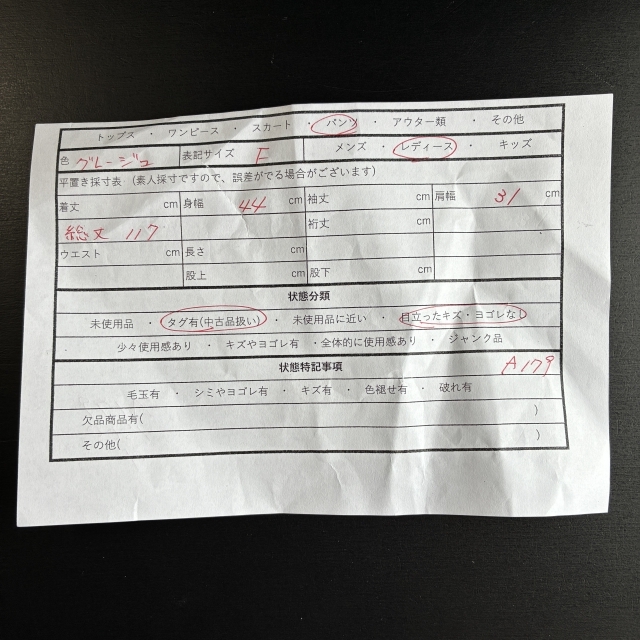 トップス ・ ワンピース ・ スカート ・ パンツ ・ アウター類 ・ その他
色 グレージュ 表記サイズ F メンズ ・ レディース ・ キッズ
平置き採寸表 (素人採寸ですので、誤差がでる場合がございます)
着丈 cm 身幅 44 cm 袖丈 cm 肩幅 31 cm
総丈 117 裄丈 cm
ウエスト cm 長さ cm
股上 cm 股下 cm
状態分類
未使用品 ・ タグ有(中古品扱い) ・ 未使用品に近い ・ 目立ったキズ・ヨゴレなし
少々使用感あり ・ キズやヨゴレ有 ・全体的に使用感あり ・ ジャンク品
状態特記事項 A179
毛玉有 ・ シミやヨゴレ有 ・ キズ有 ・ 色褪せ有 ・ 破れ有
欠品商品有( )
その他( )